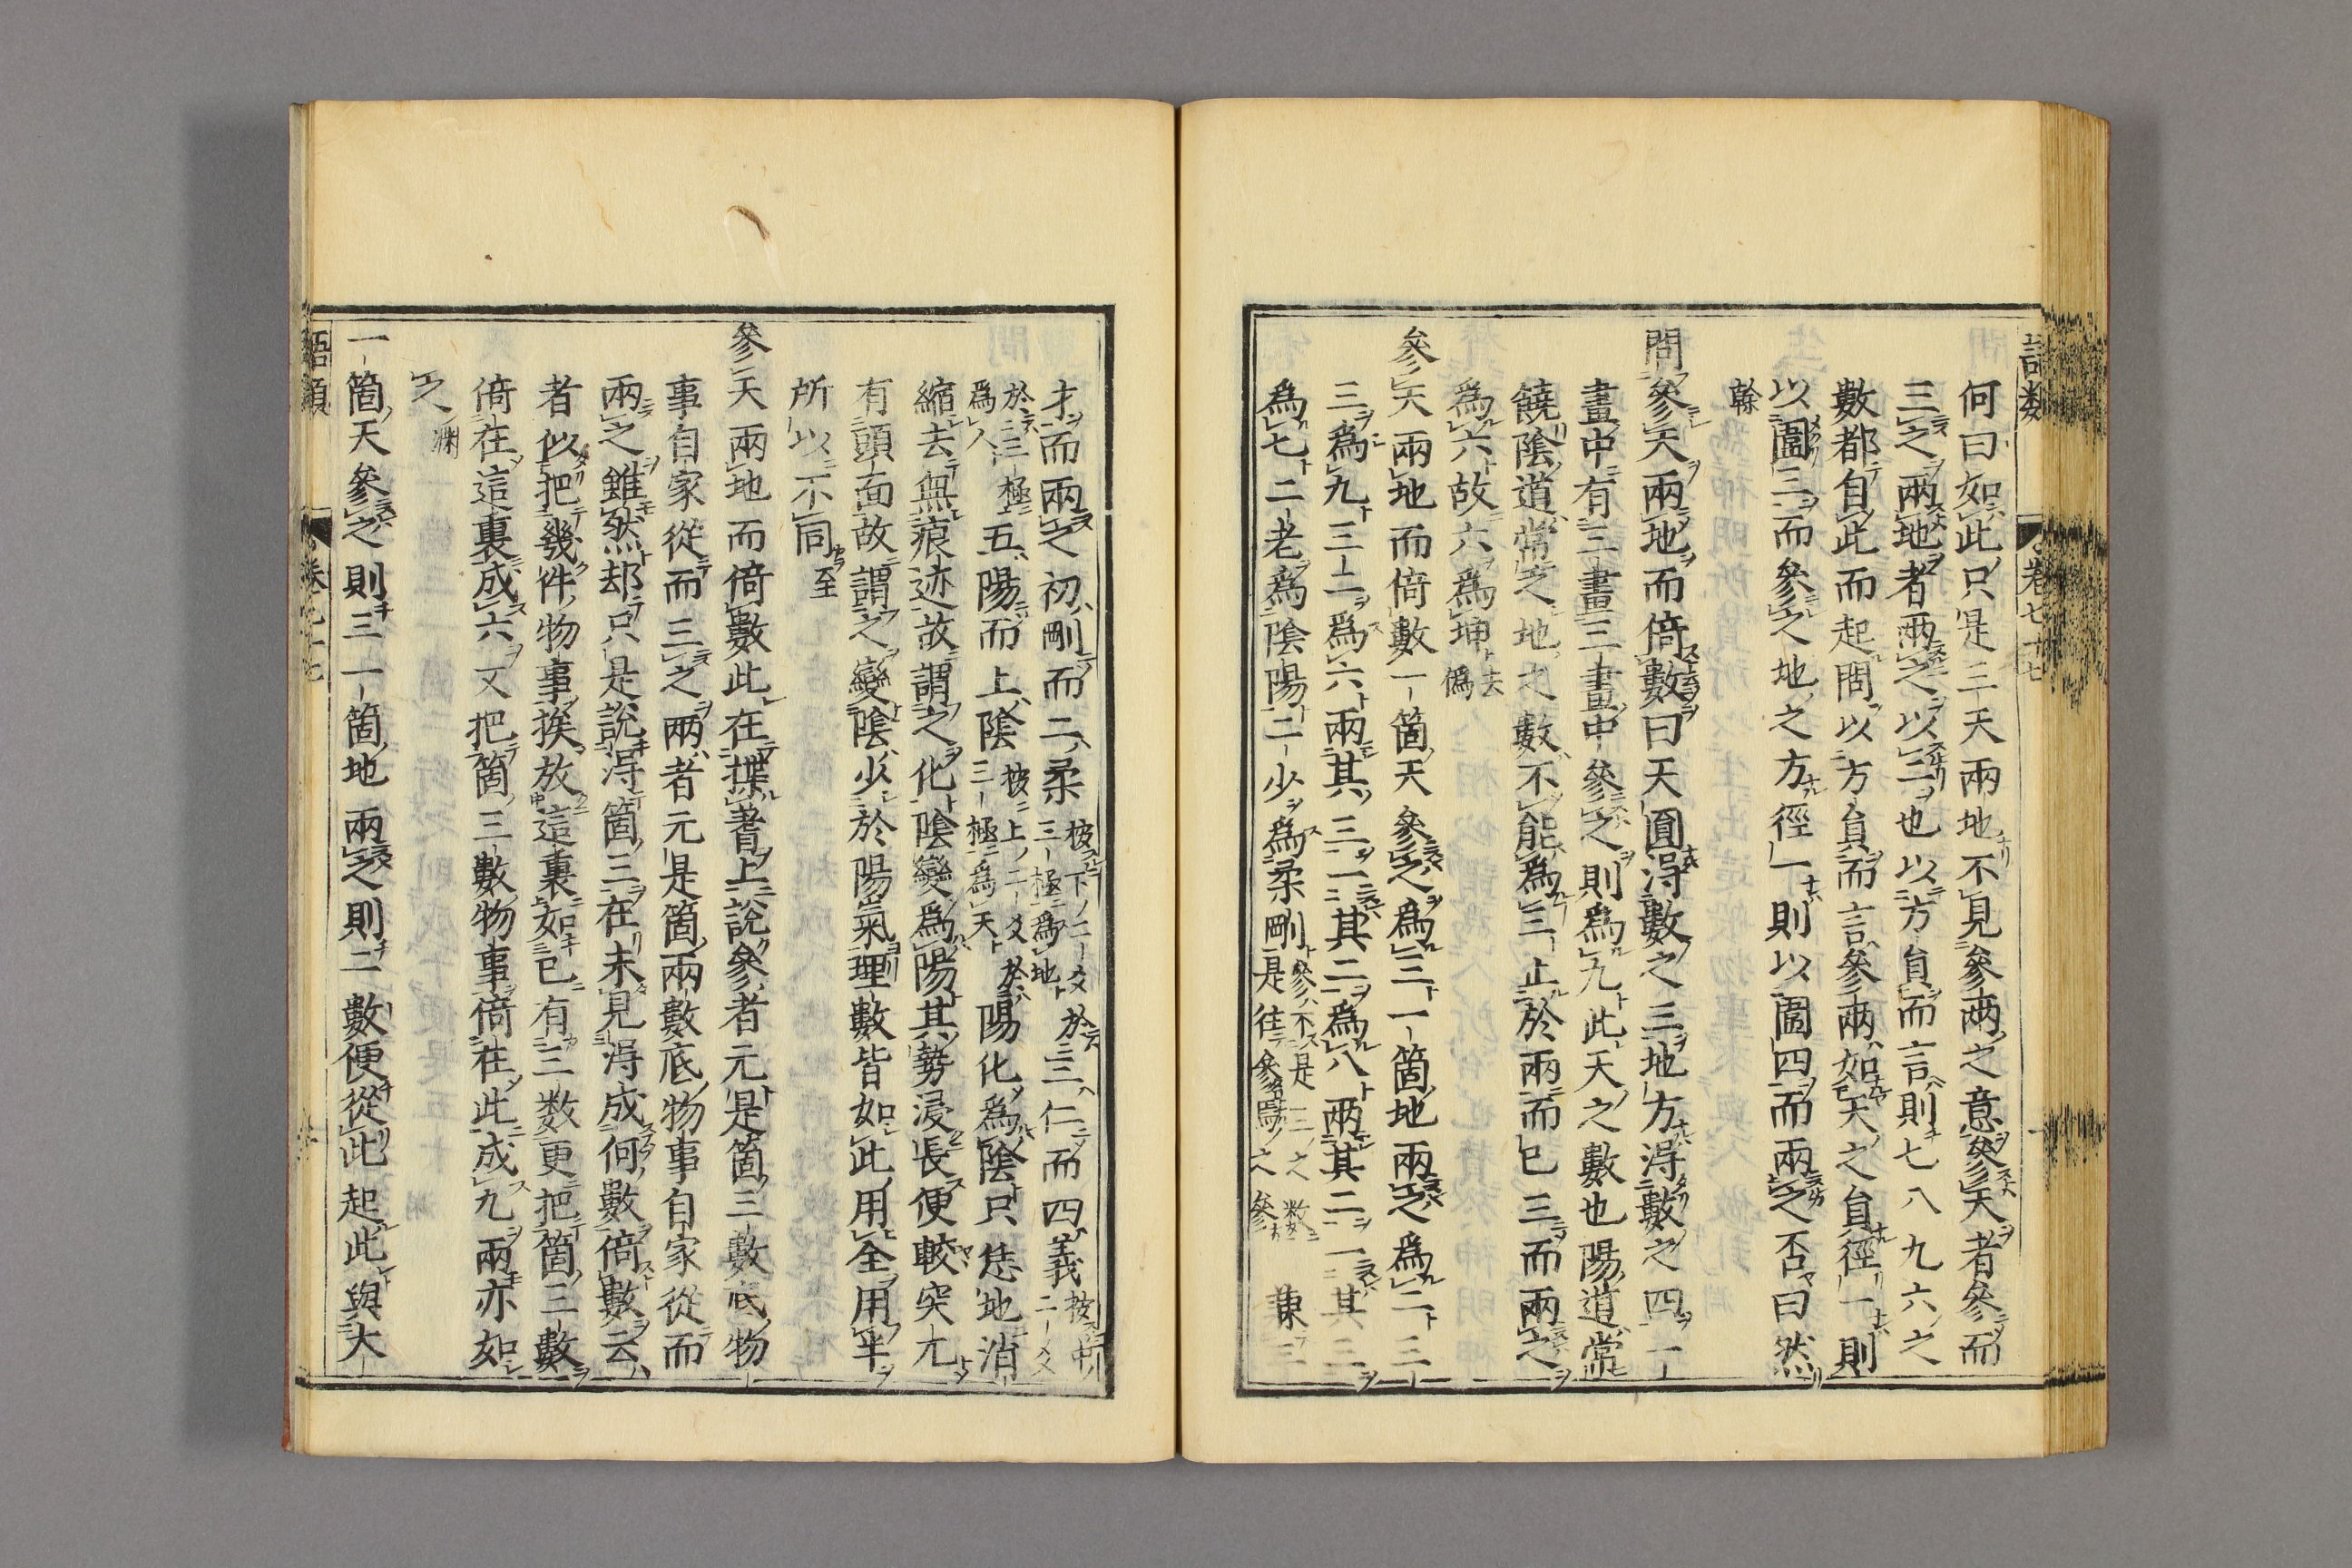 語類 卷七十七
何曰如此只是三天兩地不見參兩之意參天者參而
三之兩地者兩之以二也以方員而言則七八九六之
數都自此而起問以方員而言參兩如天之員徑一則
以圍三而參之地之方徑一則以圍四而兩之否曰然
榦
問參天兩地而倚數曰天圓得數之三地方得數之四一
畫中有三畫三畫中參之則爲九此天之數也陽道常
饒陰道常乏地之數不能爲三止於兩而已三而兩之
爲六故六爲坤去僞
參天兩地而倚數一箇天參之爲三一箇地兩之爲二三
三爲九三二爲六兩其三一其二爲八兩其二一其三
爲七二老爲陰陽二少爲柔剛參不是三之數是往參焉之參
才而兩之初剛而二柔按下二爻於三極爲地三仁而四義按中二爻
於三極爲人五陽而上陰按上二爻於三極爲天陽化爲陰只恁地消
縮去無痕迹故謂之化陰變爲陽其勢浸長便較突兀
有頭面故謂之變陰少於陽氣理數皆如此用全用半
所以不同至
參天兩地而倚數此在揲蓍上說參者元是箇三數底物
事自家從而三之兩者元是箇兩數底物事自家從而
兩之雖然却只是說得箇三在未見得成何數倚數云
者似把幾件物事挨放這裏如已有三数更把箇三數
倚在這裏成六又把箇三數物事倚在此成九兩亦如
之淵
一箇天參之則三一箇地兩之則二數便從此起此與大
語類 卷七十七